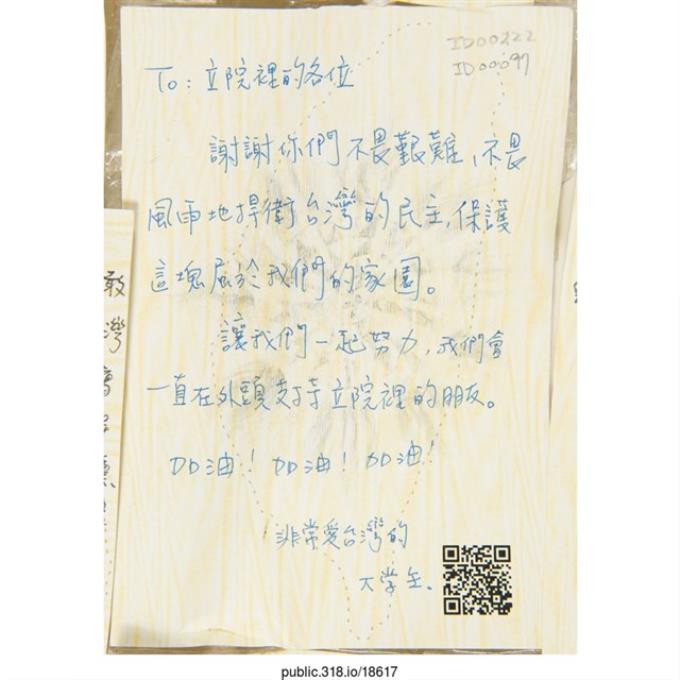 ID00222
ID00097
To: 立院裡的各位
謝謝你們不畏艱難、不畏
風雨地捍衛台灣的民主,保護
這塊屬於我們的家園。
讓我們一起努力,我們會
一直在外頭支持立院裡的朋友。
加油! 加油! 加油!
非常愛台灣的
大學生.
public.318.io/18617